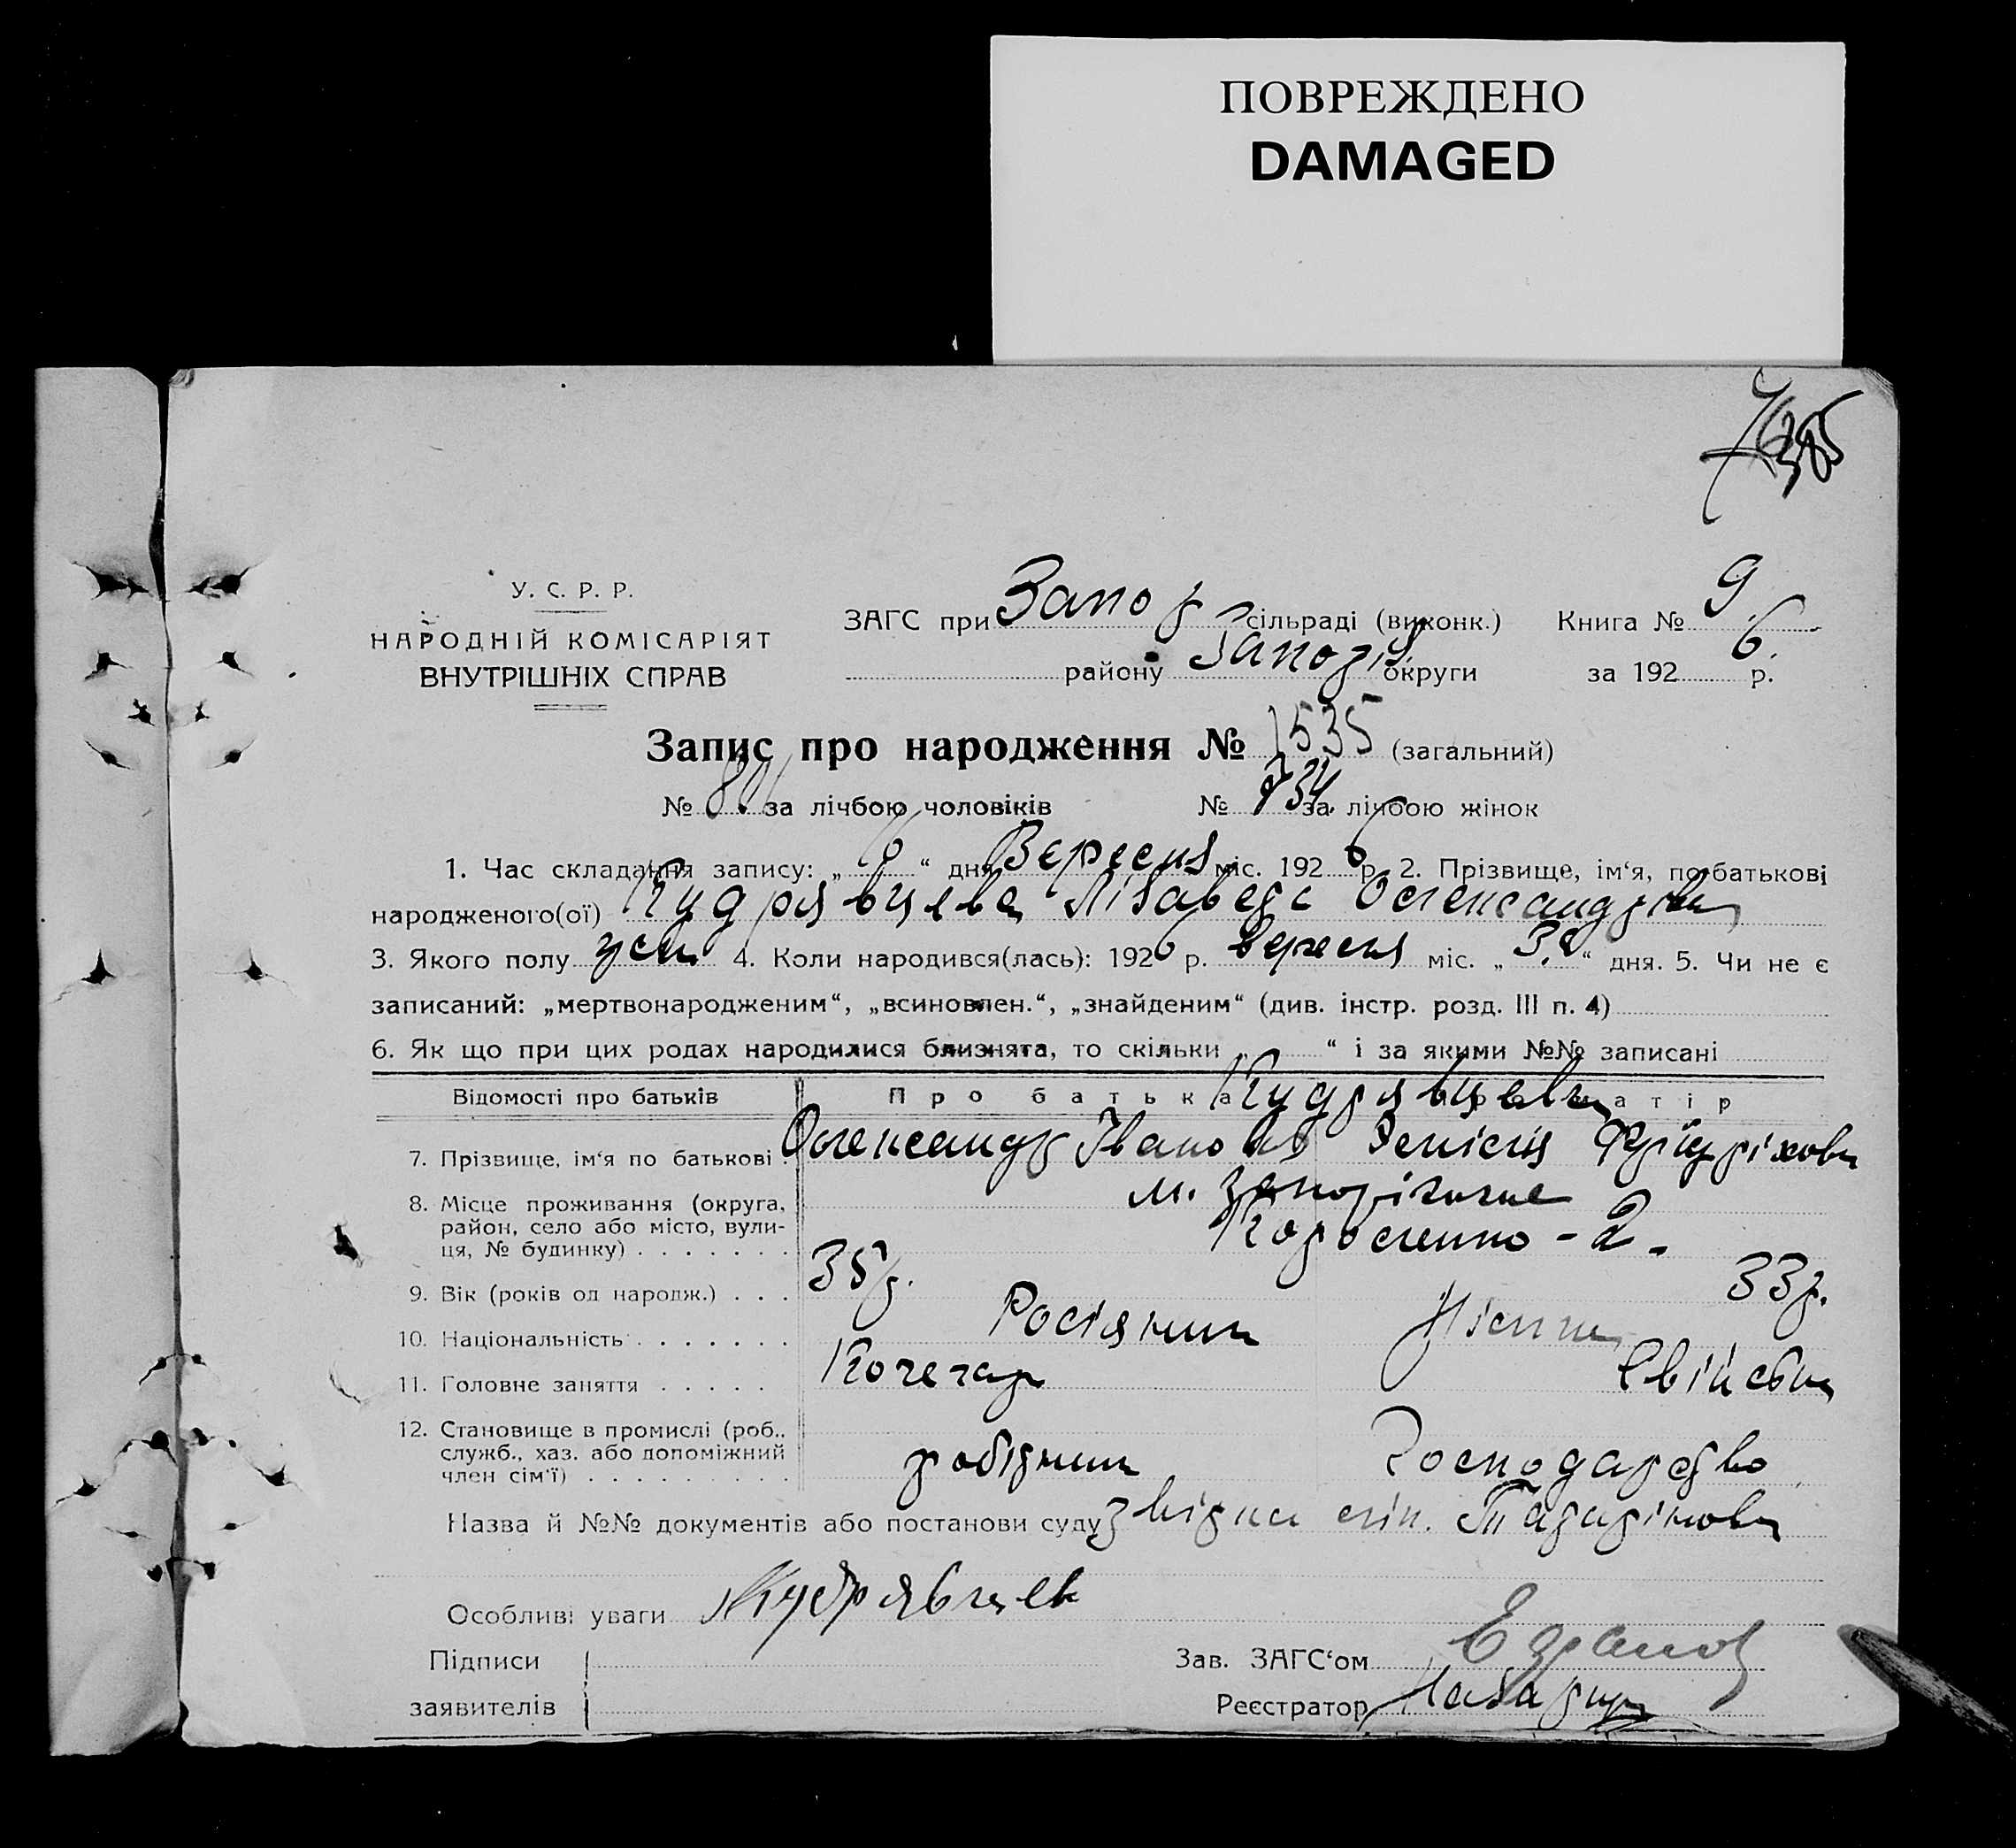 ПОВРЕЖДЕНО
DAMAGED
У. С. Р. Р.
НАРОДНІЙ КОМІСАРІЯТ
ВНУТРІШНІХ СПРАВ
ЗАГС при Запор сільраді (виконк.) Книга № 9
району Запоріз округи за 1926 р.
Запис про народження № 1535 (загальний)
№ 801 за лічбою чоловіків № 734 за лічбою жінок
1. Час складання запису: „ 16 “ дня Вересня міс. 1926 р. 2. Прізвище, ім‘я, по батькові
народженого(ої) Кудрявцева Лізавета Олександрівна
3. Якого полу 4. Коли народився(лась): 1926 р. вересня міс. „ 3. “ дня. 5. Чи не є
записаний: „мертвонародженим“, „всиновлен.“, „знайденим“ (див. інстр. розд. III п. 4)
6. Як що при цих родах народилися близнята, то скільки „ “ і за якими №№ записані
Відомості про батьків Про батька Про матір
Кудрявцеви
7. Прізвище, ім‘я по батькові Олександр Іванов Фрідріхови
8. Місце проживання (округа, район, село або місто, вулиця, № будинку) м. Запоріжжє
Короленко - 2.
9. Вік (років од народж.) 35 р. 33 р.
10. Національність Росіянин Німкиня
11. Головне заняття Кочегар Свійські
12. Становище в промислі (роб., служб., хаз. або допоміжний член сім‘ї) робітник господарство
Назва й №№ документів або постанови суду звідка
Особливі уваги Кудрявцев
Підписи Зав. ЗАГС‘ом
заявителів Реєстратор